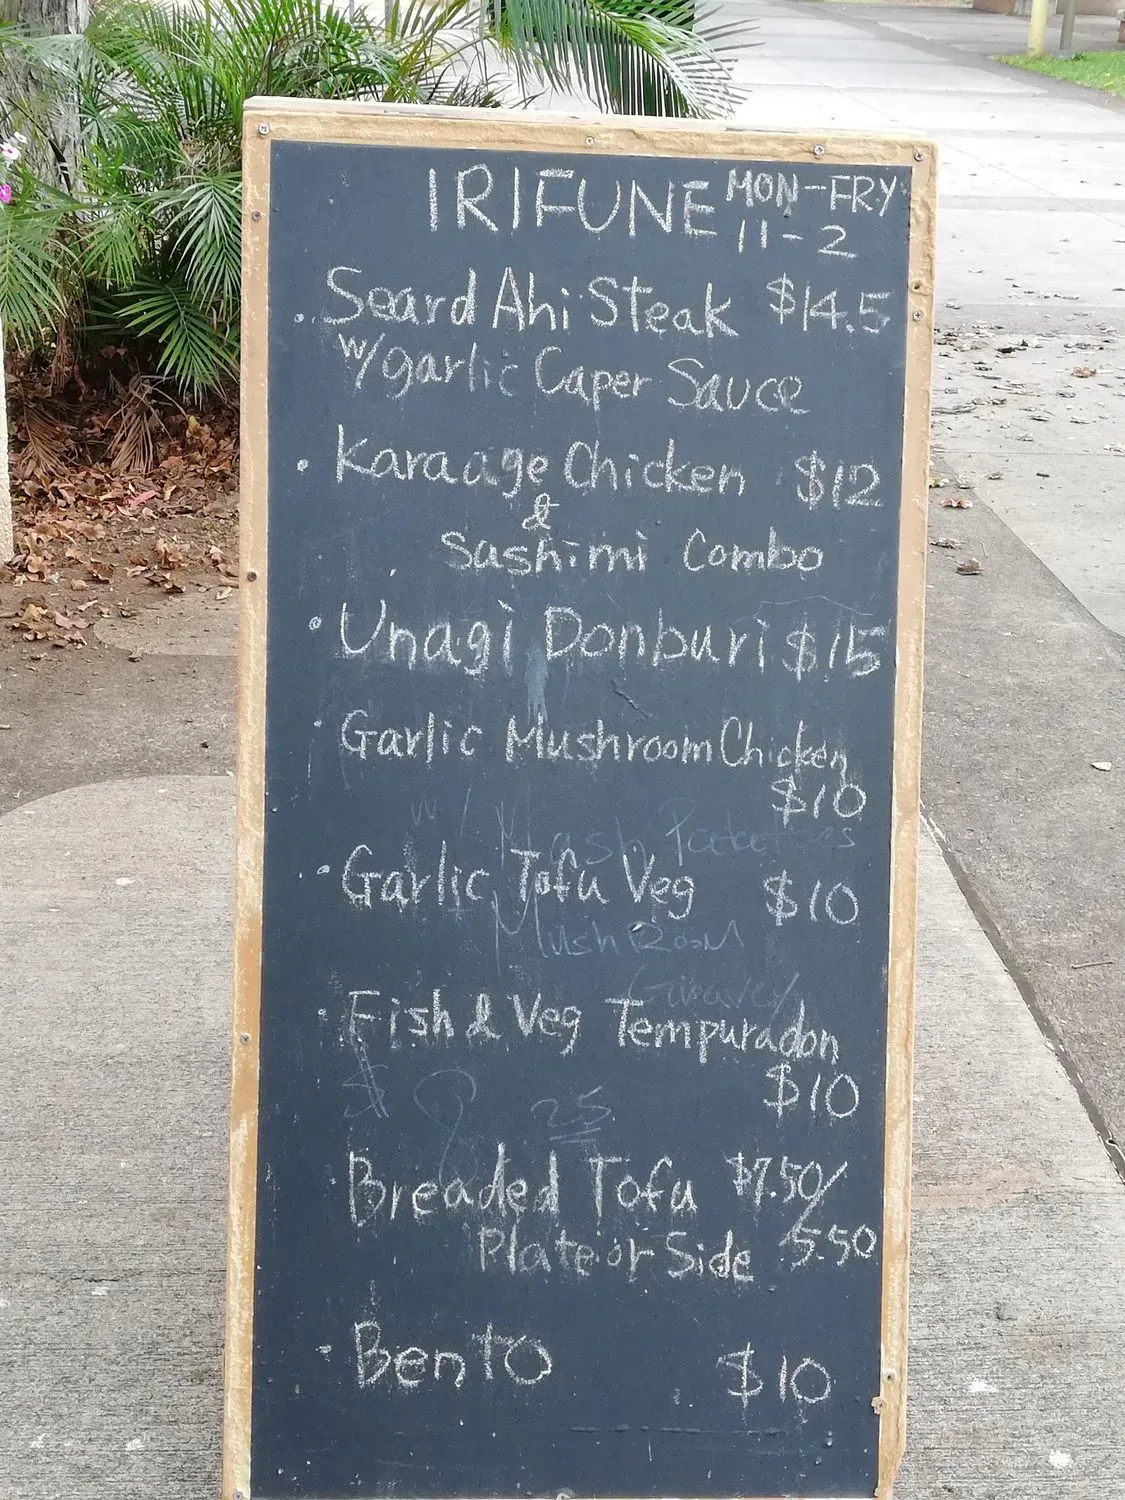 IRIFUNE MON-FRY
11-2
. Seard Ahi Steak $14.5
w/garlic Caper Sauce
. Karaage Chicken $12
&
Sashimi Combo
. Unagi Donburi $15
. Garlic Mushroom Chicken
$10
w/ Mash Potatoes
. Garlic Tofu Veg $10
MushRooM
Gravey
. Fish & Veg Tempuradon
$10
$ 8 25
. Breaded Tofu $7.50/
Plate or Side 5.50
. Bento $10